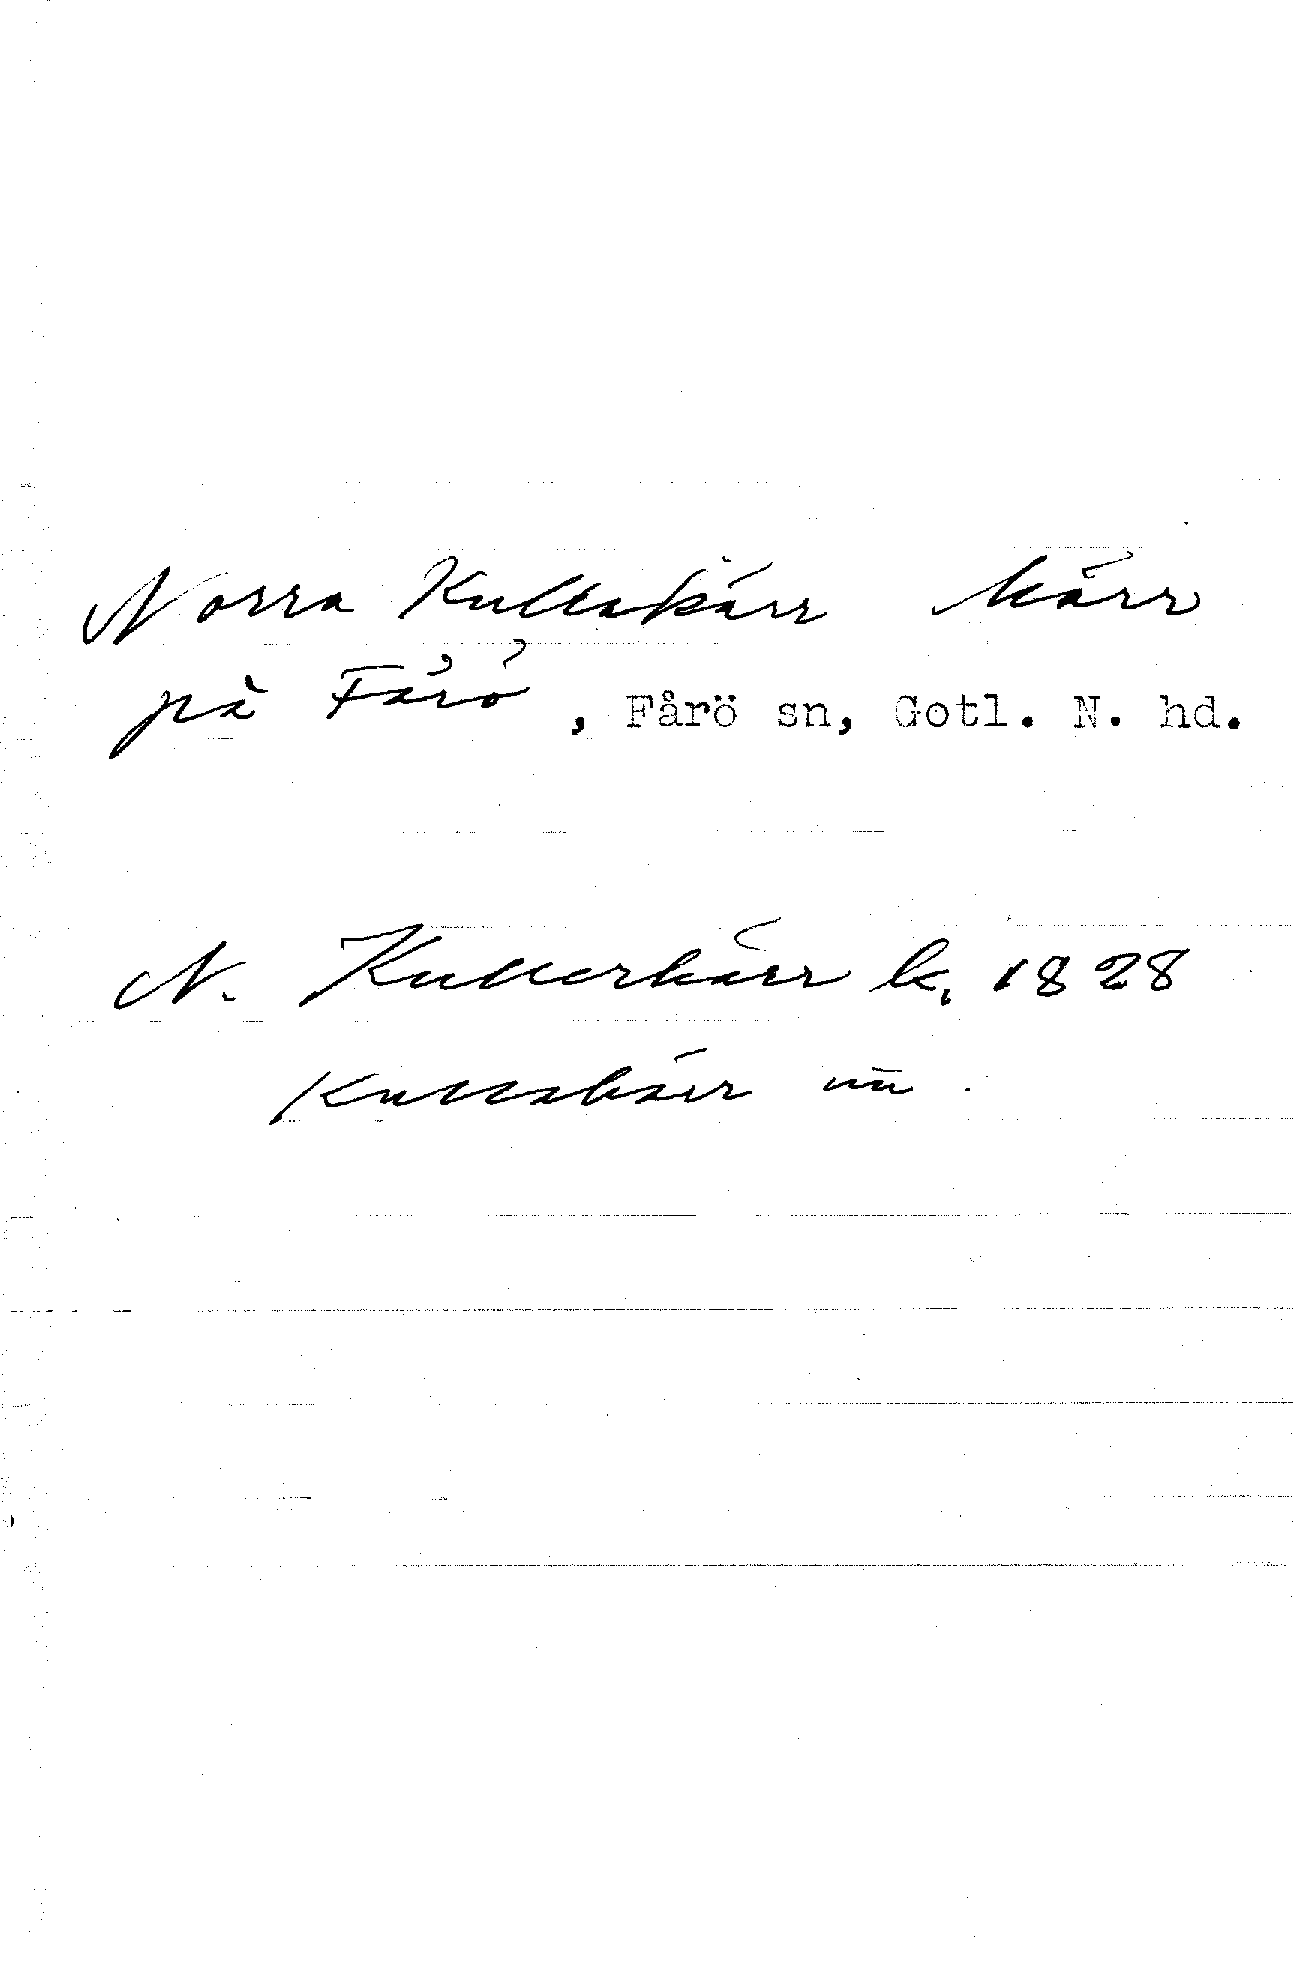 Norra Kullakärr kärr
på Fårö, Fårö sn, Gotl. N. hd.
N. Kullerkärr k. 1828
Kullakärr